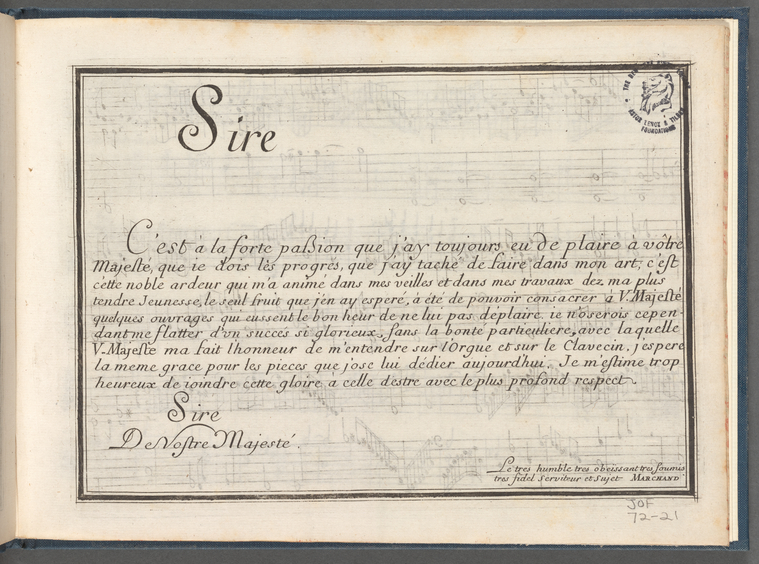 Sire
C'est à la forte paßion que j'ay toujours eu de plaire à vôtre
Majesté, que ie dois les progres, que j'ay taché de faire dans mon art; c'est
cette noble ardeur qui m'a animé dans mes veilles et dans mes travaux dez ma plus
tendre Jeunesse, le seul fruit que j'en ay esperé, à été de pouvoir consacrer à V. Majesté
quelques ouvrages qui eussent le bon heur de ne lui pas deplaire. ie n'oserois cepen-
dant me flatter d'vn succés si glorieux, sans la bonté particuliere, avec la quelle
V. Majesté ma fait l'honneur de m'entendre sur l'Orgue et sur le Clavecin. j'espere
la meme grace pour les pieces que j'ose lui dédier aujourd'hui. Je m'estime trop
heureux de ioindre cette gloire à celle d'estre avec le plus profond respect.
Sire
De Vostre Majesté.
Le tres humble tres obeissant tres soumis
tres fidel serviteur et sujet MARCHAND
ASTOR LENOX & TILDEN
FOUNDATIONS
JOF
72-21